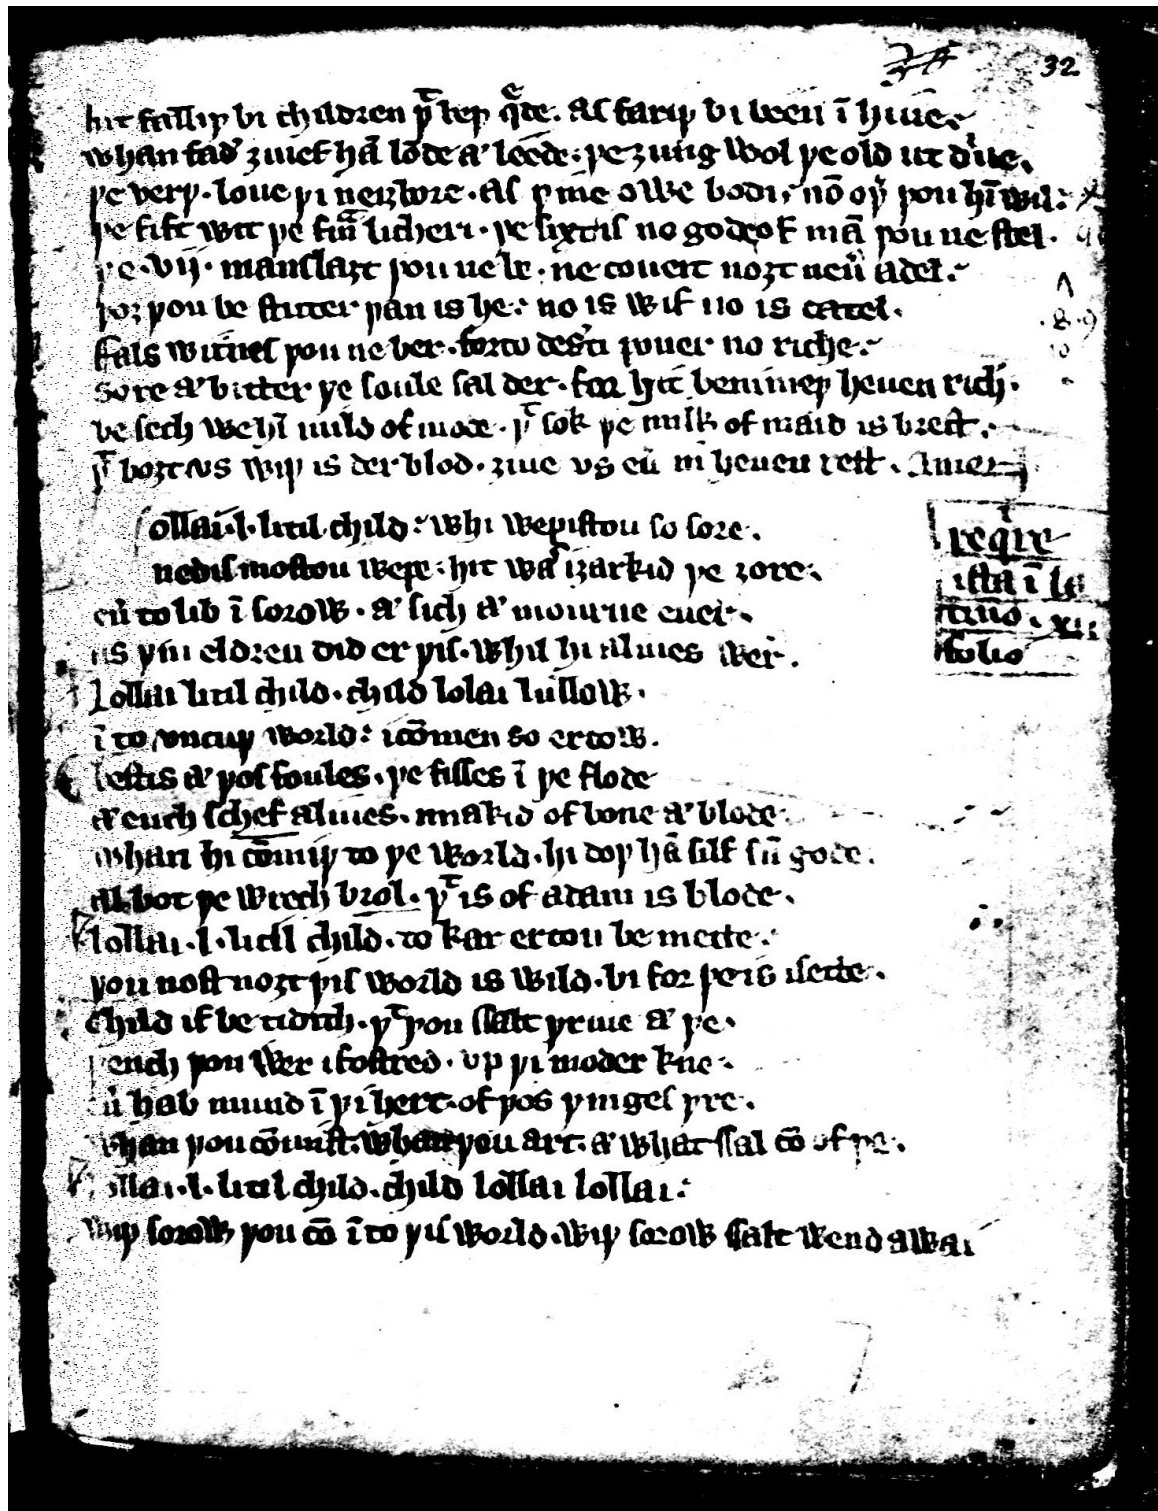 32
hit falliþ bi children þͭ beþ qͣde. as fariþ bi been ī hiue.
whan fadͬ ȝiueſ hā lōde a leede: þe ȝung wol þe old ut dͥue.
þe verþ. loue þi neiȝbore. as þine owe bodi, nō oþͬ þou hī wil:
þe fift wit þe fram licheri. þe sixt is no godeof mā þou ne stel.
þe .vij. manslaȝt þou ne be. ne coueit noȝt neuͬ adel.
þoȝ þou be stutter þan is he: no is wif no is catel.
Fals witnes þou ne ber. forto desͬti pouer no riche.
sore a bitter þe soule sal der. for hit benimeþ heuen rich.
be sech we hī mild of mode. þͭ sok þe milk of maid is brest.
þͭ boȝt vs wiþ is der blod. ȝiue vs euͬ in heuen rest. Amen
ollai .l. litil child: whi wepistou so sore.
nedis mostou wepe. hit was iȝarkid þe ȝore.
euͬ to lib ī sorow. a sich a mourne euer.
as þin eldren did er þis. whil hi aliues wer.
Lollai litil child. child lolai lullow.
ī to vncuþ world: icōmen so ertow.
bestis a þos foules. þe fisses ī þe flode
a euch schef aliues. imakid of bone a blode.
whan hi cōmiþ to þe world. hi doþ hā silf sū gode.
Al bot þe wrech brol. þͭ is of adam is blode.
lollai .l. litil child. to kar ertou be mette.
þou nost noȝt þis world is wild. bi for þe is isette.
Child if be tidith. þͭ þou ssalt þriue a þe.
þench þou wer ifostred. vp þi moder kne.
euͬ hab mund ī þi hert. of þos þinges þre.
whan þou cōmist. whan þou art. a what ssal cō of þe.
ollai .l. litil child. child lollai lollai:
wiþ sorow þou cō ī to þis world. wiþ sorow ssalt wend awai
reqͥre
ista ī la
tino. xii
folio